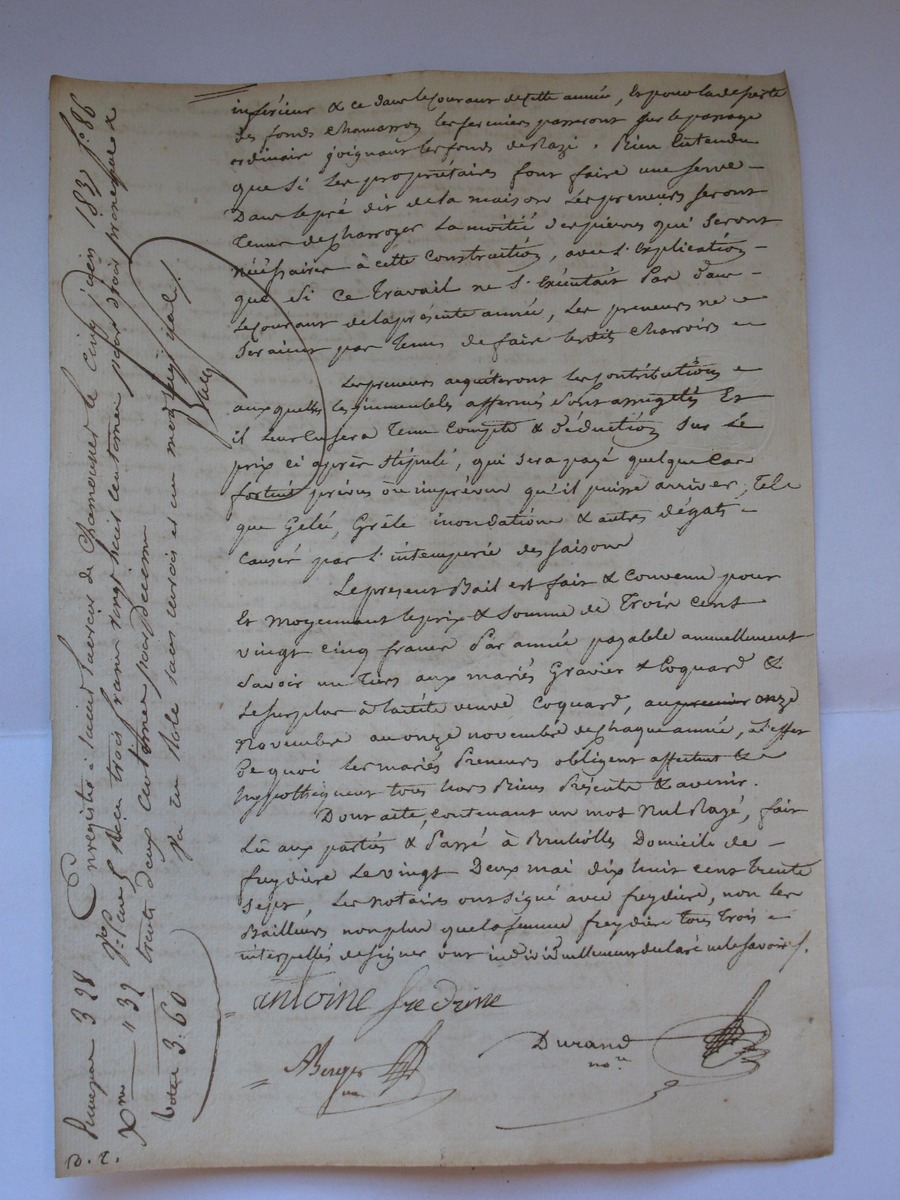 inférieur & ce dans le courant de cette année, Et pour la desserte
des fonds Chamasson les fermiers passeront sur le passage
ordinaire joignant les fonds de Razi. Bien Entendu
que si les propriétaires font faire une serve
Dans le pré dit de la maison Les preneurs seront
Tenus de Charroyer La moitié des pierres qui seront
nécéssaires à cette Construction, avec l'Explication
que si ce Travail ne s'Exécutait Pas Dans
Le courant de la présente année, Les preneurs ne
seraient pas Tenus de faire lesdits Charrois
Les preneurs aquiteront les Contributions
auxquelles les immeubles affermés sont assugétis Et
il Leur En sera Tenu Compte & déduction sur Le
prix ci après stipulé, qui sera payé quelque Cas
fortuit prévus ou imprévus qu'il puisse arriver, Tels
que Gelée, Grêle inondations & autres dégats
Causés par l'intemperie des saisons
Le présent Bail est fait & Convenu pour
Et Moyennant le prix & somme de Trois cent
vingt cinq francs Par année payable annuellement
savoir un Tiers aux mariés Gravier & Coquard &
Le surplus à ladite veuve Coquard, au premier onze
Novembre au onze novembre de Chaque année, à l'effet
De quoi les mariés Preneurs obligent affectent &
hypothèquent tous leurs Biens Présents & avenir.
Dont acte, contenant un mot Nul Rayé, fait
Lu aux parties & Passé à Domicile de
freydière Le vingt Deux mai dix huit cent trente
sept, Les notaires ont signé avec freydière, non les
Bailleurs non plus que la femme freydière tous trois
interpellés de signer ont individuellement déclaré ne le savoir ./.
antoine fredière
ABerger
Durand
nore
Enregistré à le cinq juin 1837 fo 86
Ro reçu trois francs vingt huit centimes pour
trente deux centimes pour decime
Principal 3 28
Xme " 32
Total 3: 60